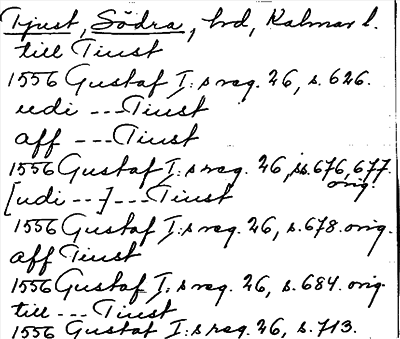 Tjust, Södra, hrd, Kalmar l.
till Tiust
1556 Gustaf I:s reg. 26, s. 626.
udi --- Tiust
aff --- Tiust
1556 Gustaf I:s reg. 26, ss. 676, 677. orig.
[udi --] --- Tiust
1556 Gustaf I:s reg. 26, s. 678. orig.
aff Tiust
1556 Gustaf I:s reg. 26, s. 684. orig.
till --- Tiust
1556 Gustaf I:s reg. 26, s. 713.